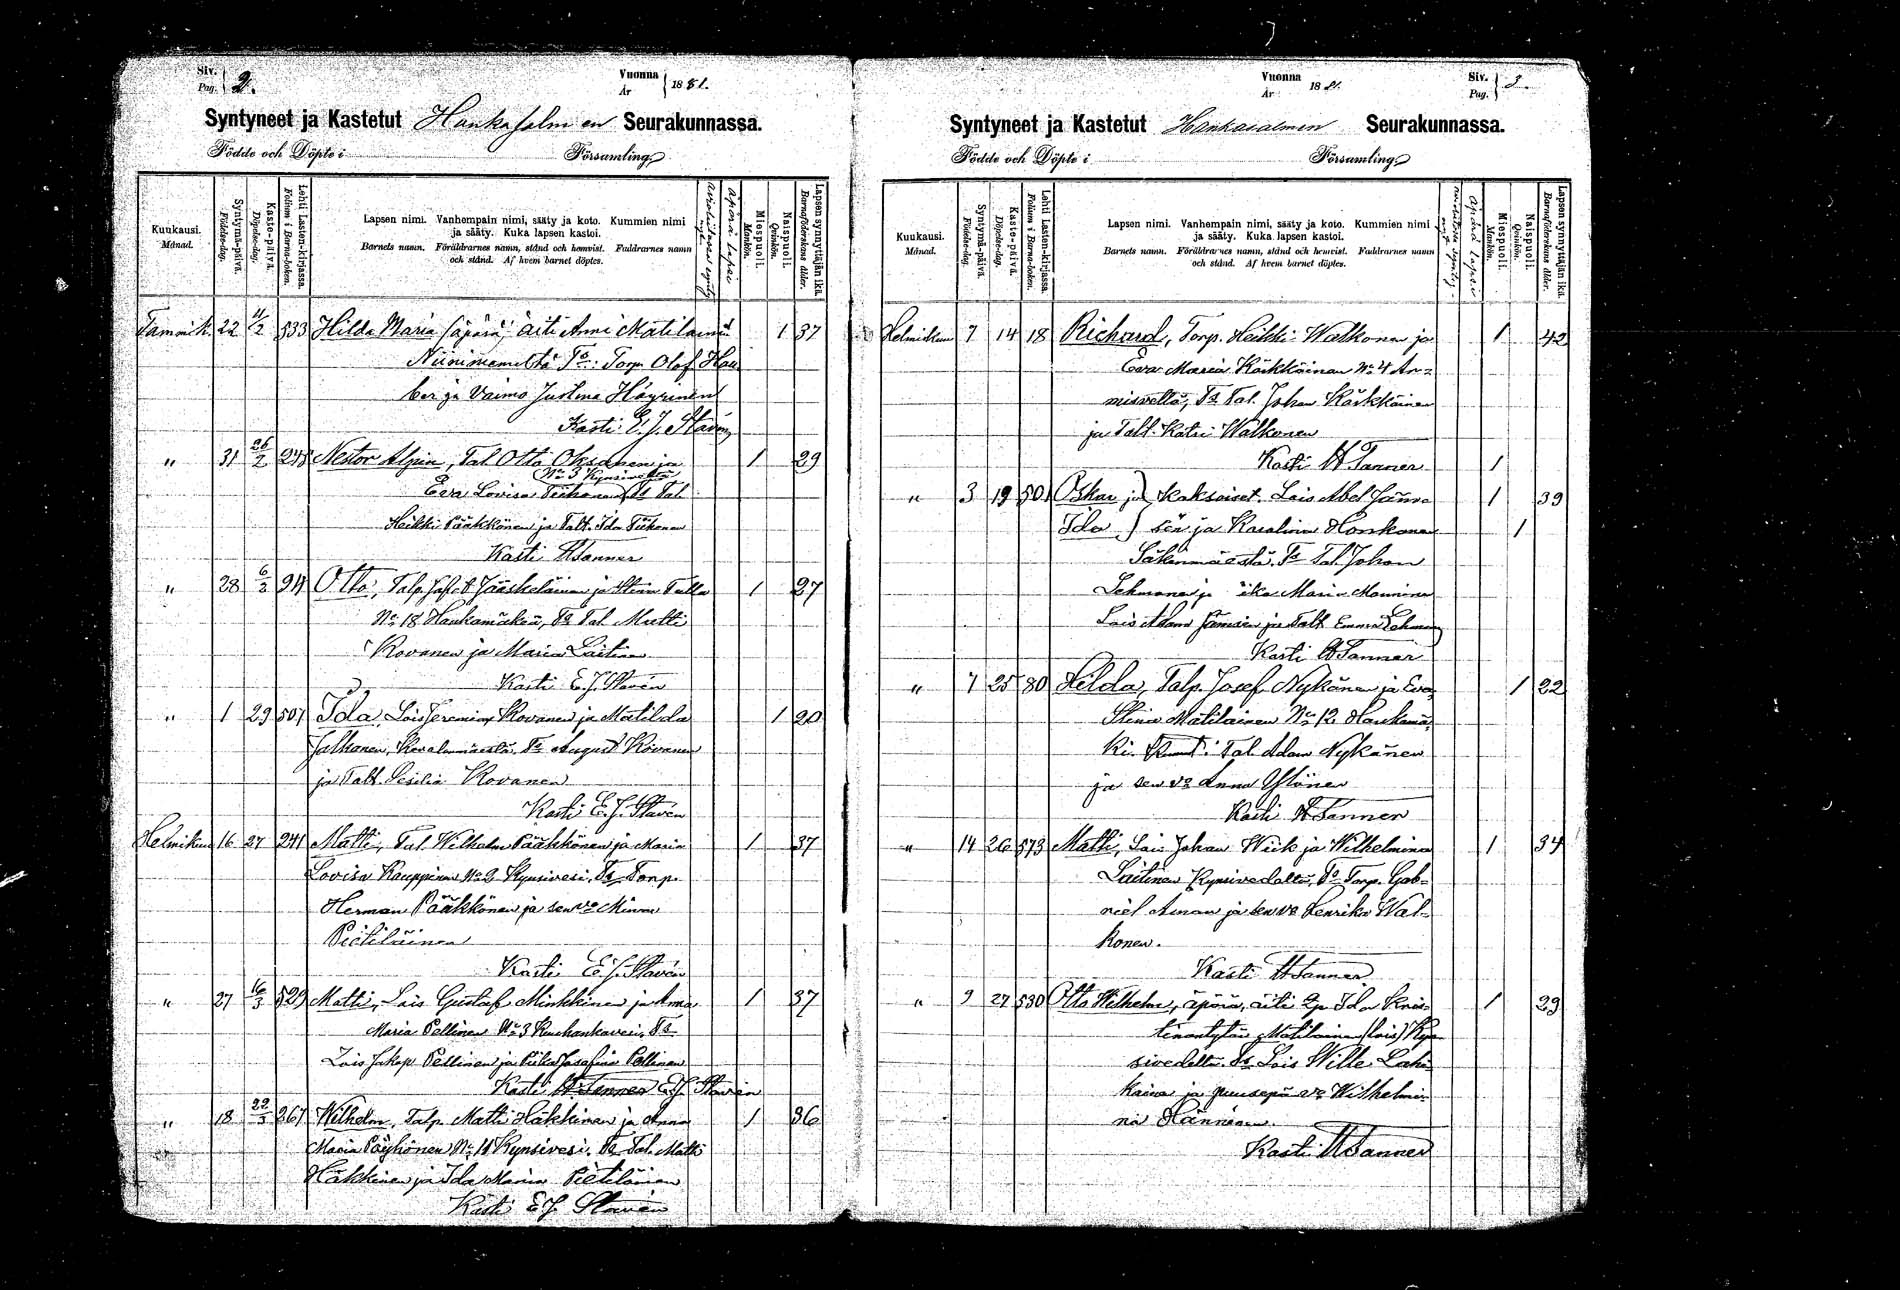 Siv. Pag. 2.
Vuonna År 1881.
Syntyneet ja Kastetut Hankasalmen Seurakunnassa.
Födde och Döpte i Församling
Kuukausi. Månad.
Syntymä-päivä. Födelse-dag.
Kaste-päivä. Döpelse-dag.
Lehti Lasten-kirjassa. Folium i Barna-boken.
Lapsen nimi. Vanhempain nimi, sääty ja koto. Kummien nimi
ja sääty. Kuka lapsen kastoi.
Barnets namn. Föräldrarnes namn, stånd och hemvist. Faddrarnes namn
och stånd. Af hvem barnet döptes.
Äpärä lapsi
Miespuoli. Mankön.
Naispuoli. Qvinkön.
Lapsen synnyttäjän ikä. Barnaföderskans ålder.
Tammik. 22 4/2 533 Hilda Maria (äpärä) äiti Anni Matilainen 1 37
Niinimäeltä Ts: Torp. Olof Hau
ber ja Vaimo Justina Häyrinen
Kasti E. J. Stavén
" 31 26/2 248 Nestor Alpin, Tal. Otto Oksanen ja 1 29
No 3 Kynsivettä
Eva Lovisa Tiihonen Ts Tal.
Heikki Pääkkönen ja Talt. Ida Tiihonen
Kasti A Tanner
" 28 6/2 94 Otto, Talp. Jafet Jääskeläinen ja Stina Tulla 1 27
No 18 Hankamäken, Ts Tal. Matti
Kovanen ja Maria Laitinen
Kasti E. J. Stavén
" 1 29 507 Ida, Lois Jeremias Kovanen ja Matilda 1 20
Jalkanen, Ts August Kovanen
ja Talt. Cesilia Kovanen
Kasti E. J. Stavén
Helmikuu 16 27 241 Matti, Tal. Wilhelm Pääkkönen ja Maria 1 37
Lovisa Kauppinen No 2 Kynsivesi. Ts Torp.
Herman Pääkkönen ja sen vo Minna
Pietiläinen
Kasti E. J. Stavén
" 27 16/3 529 Matti, Lois Gustaf Minkkinen ja Anna 1 37
Maria Pellinen No 3 Kuuhankavesi. Ts
Lois Jakop Pellinen ja Piika Josefina Pellinen
Kasti A Tanner E. J. Stavén
" 18 22/3 267 Wilhelm, Talp. Matti Häkkinen ja Anna 1 36
Maria Pöyhönen No 11 Kynsivesi. Ts Tal. Matti
Häkkinen ja Ida Maria Pietiläinen
Kasti E. J. Stavén
Vuonna År 1881.
Siv. Pag. 3.
Syntyneet ja Kastetut Hankasalmen Seurakunnassa.
Födde och Döpte i Församling
Kuukausi. Månad.
Syntymä-päivä. Födelse-dag.
Kaste-päivä. Döpelse-dag.
Lehti Lasten-kirjassa. Folium i Barna-boken.
Lapsen nimi. Vanhempain nimi, sääty ja koto. Kummien nimi
ja sääty. Kuka lapsen kastoi.
Barnets namn. Föräldrarnes namn, stånd och hemvist. Faddrarnes namn
och stånd. Af hvem barnet döptes.
Äpärä lapsi
Miespuoli. Mankön.
Naispuoli. Qvinkön.
Lapsen synnyttäjän ikä. Barnaföderskans ålder.
Helmikuu 7 14 18 Richard, Torp. Heikki Walkonen ja 1 42
Eva Maria Kärkkäinen No 4 Ar=
misveltä, Ts Tal. Johan Kärkkäinen
ja Talt. Katri Walkonen
Kasti A Tanner 1
" 3 19 501 Oskar ja } Kaksoiset. Lois Abel Jämse 1 39
Ida } sén ja Karolina Honkonen 1
Säkinmäestä. Ts Tal. Johan
Lehmonen ja Maria Manninen
Lois Adam Jämsén ja Talt Emma Lehmonen
Kasti A Tanner
" 7 25 80 Hilda, Talp. Josef Nykänen ja Eva 1 22
Stina Matilainen No 12 Hankamä=
ki. Kummit: Tal. Adam Nykänen
ja sen vo Anna Ylönen
Kasti A Tanner
" 14 26 573 Matti, Lois Johan Wiik ja Wilhelmina 1 34
Laitinen Kynsivedeltä, Ts Torp. Gab=
riel Aman ja sen vo Henrika Wal=
konen.
Kasti A Tanner
" 9 27 530 Otto Wilhelm, äpärä, äiti Ida 1 29
Matilainen (lois) Kyn
sivedeltä. Ts Lois Wille Laka
kainen ja puusepän vo Wilhelmi=
na Hänninen.
Kasti A Tanner